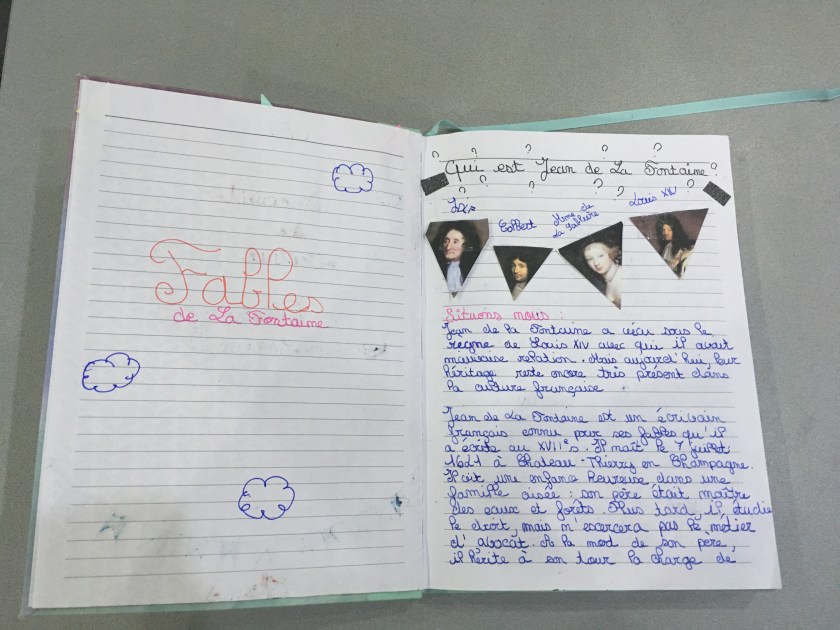 Fables
de La Fontaine
Qui est Jean de La Fontaine?
Colbert
Mme de
La Sablière
Louis XIV
Situons nous :
Jean de La Fontaine a vécu sous le
règne de Louis XIV avec qui il avait
mauvaise relation. Mais aujourd'hui, leur
héritage reste encore très présent dans
la culture française
Jean de La Fontaine est un écrivain
français connu pour ses fables qu'il
a écrite au XVII°s. Il naît le 7 juillet
1621 à Chateau-Thierry en Champagne.
Il vit une enfance heureuse dans une
famille aisée : son père était maître
des eaux et forêts. Plus tard, il étudie
le droit, mais n'escercera pas le métier
d'avocat. A la mord de son père,
il hérite à son tour la charge de